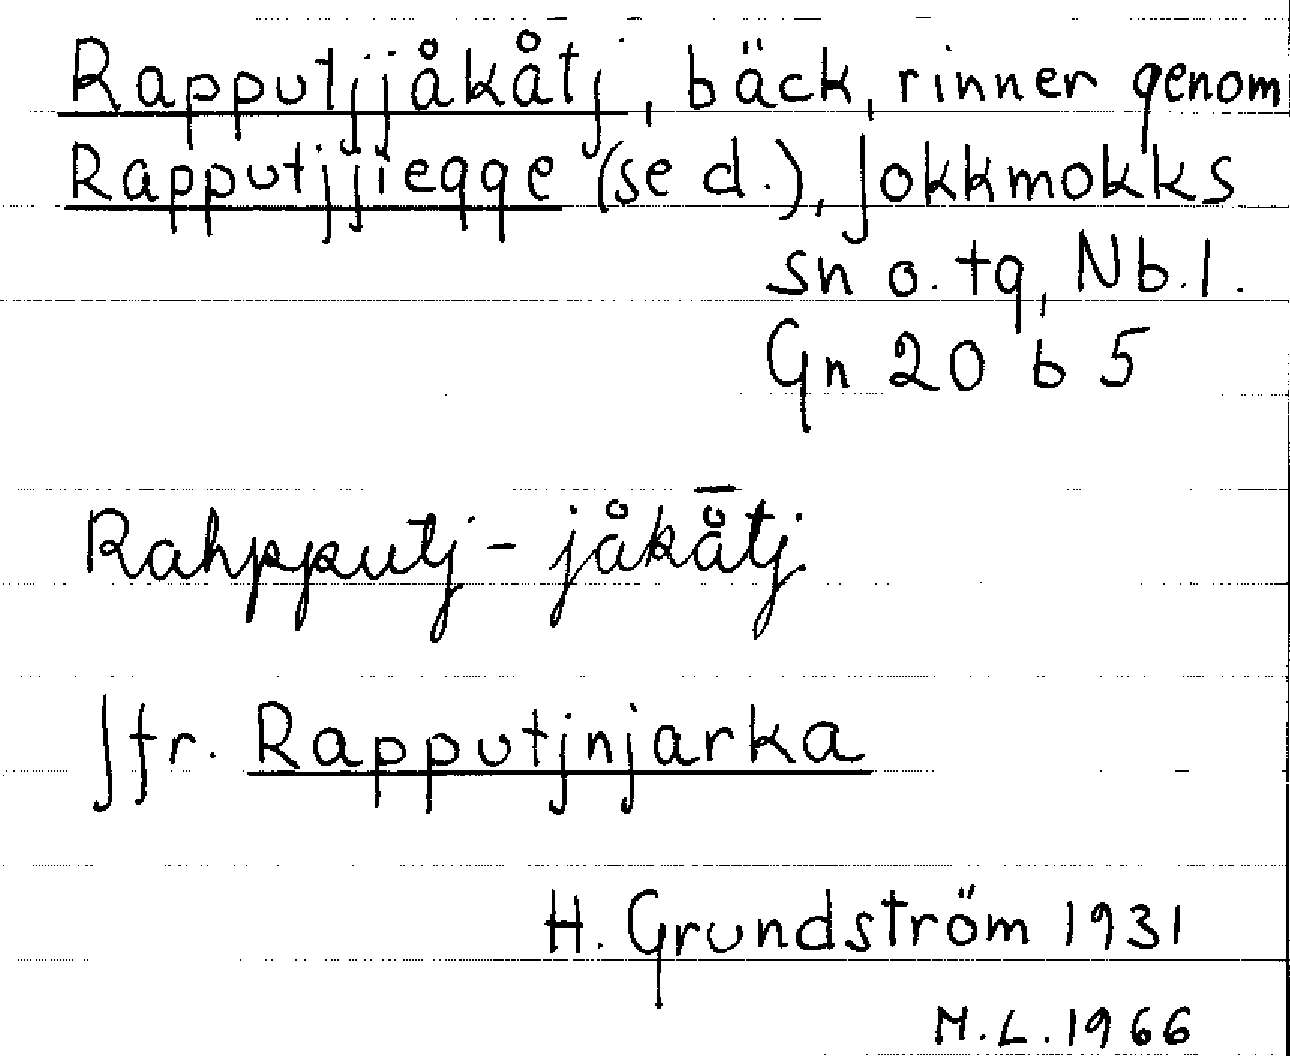 Rapputjjåkåtj, bäck, rinner genom
Rapputjjiegge (se d.), Jokkmokks
sn o. tg, Nb.l.
Gn 20 b 5
Rahpputj-jåkå̄tj
Jfr. Rapputjnjarka
H. Grundström 1931
M.L. 1966